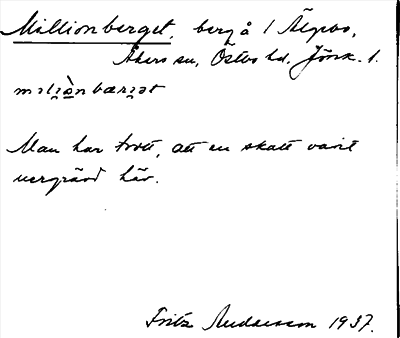 Millionberget, berg å 1 Älgbo,
Åkers sn, Östbo hd, Jönk. l.
miliònbærjət
Man har trott, att en skatt varit
nergrävd här.
Fritz Andersson 1937.